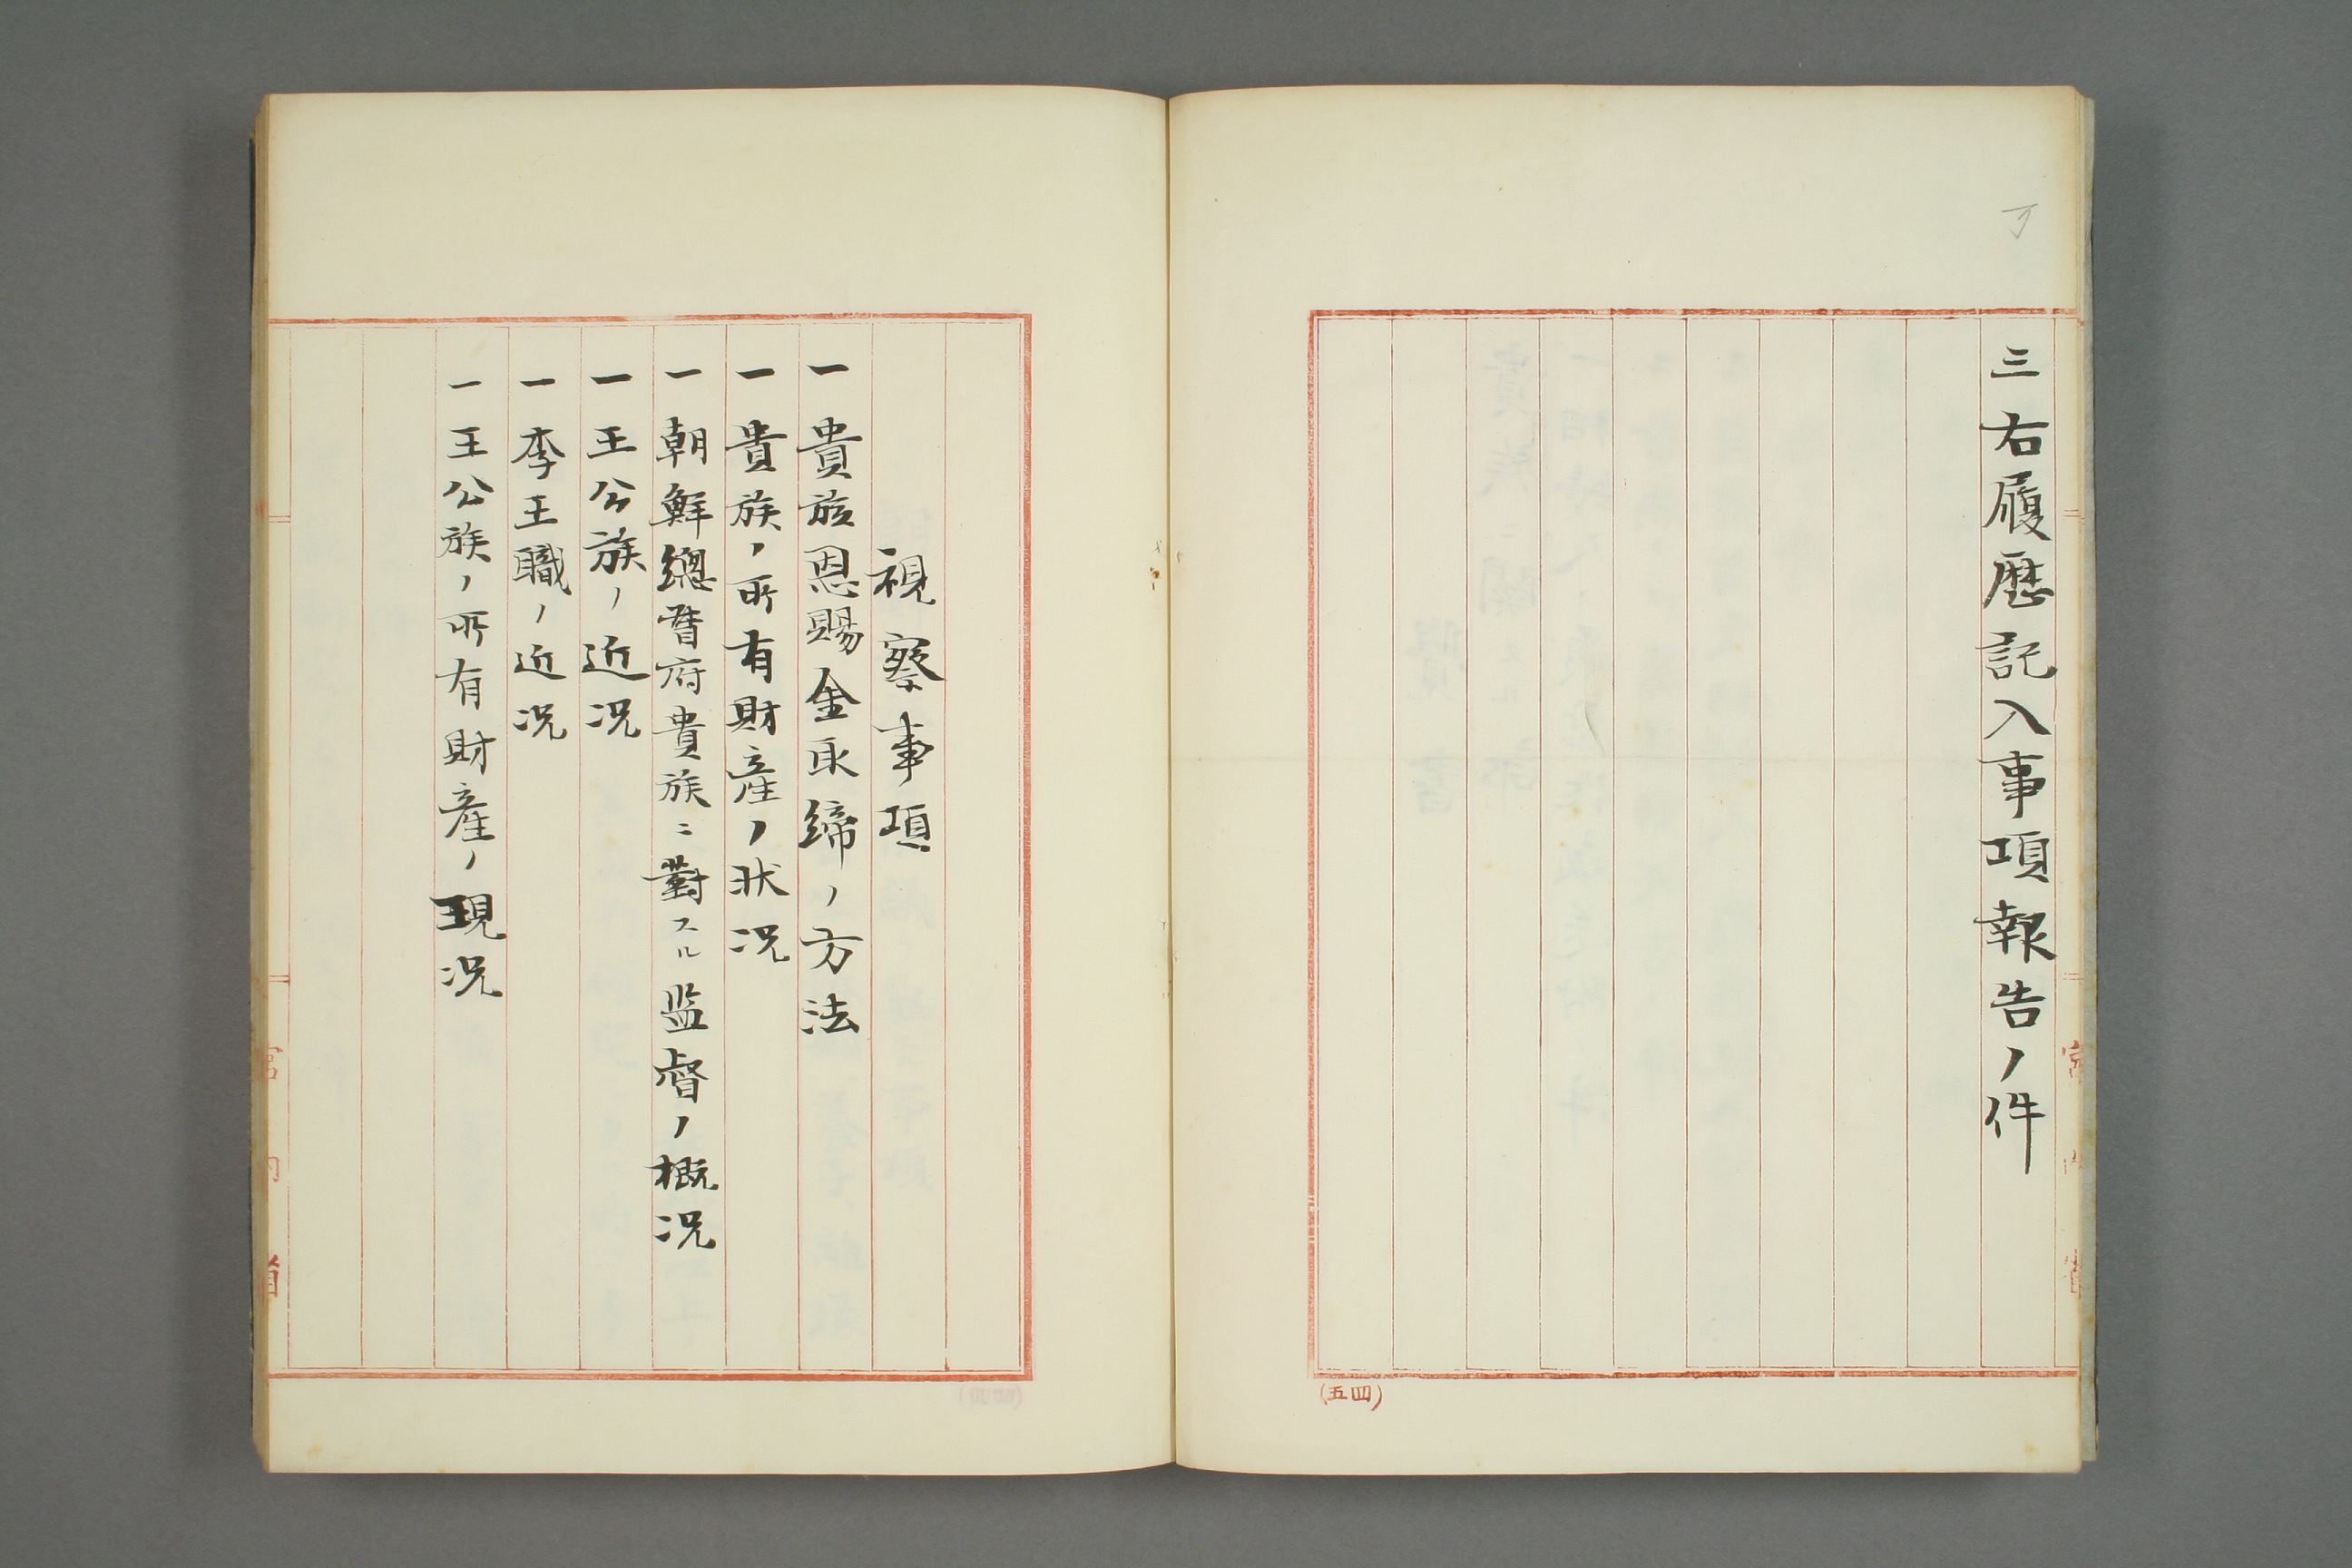 三右履歴記入事項報告ノ件
宮内省
(五四)
視察事項
一貴族恩賜金取締ノ方法
一貴族ノ所有財産ノ状况
一朝鮮總督府貴族ニ對スル监督ノ概况
一王公族ノ近况
一李王職ノ近况
一王公族ノ所有財産ノ現况
宮内省